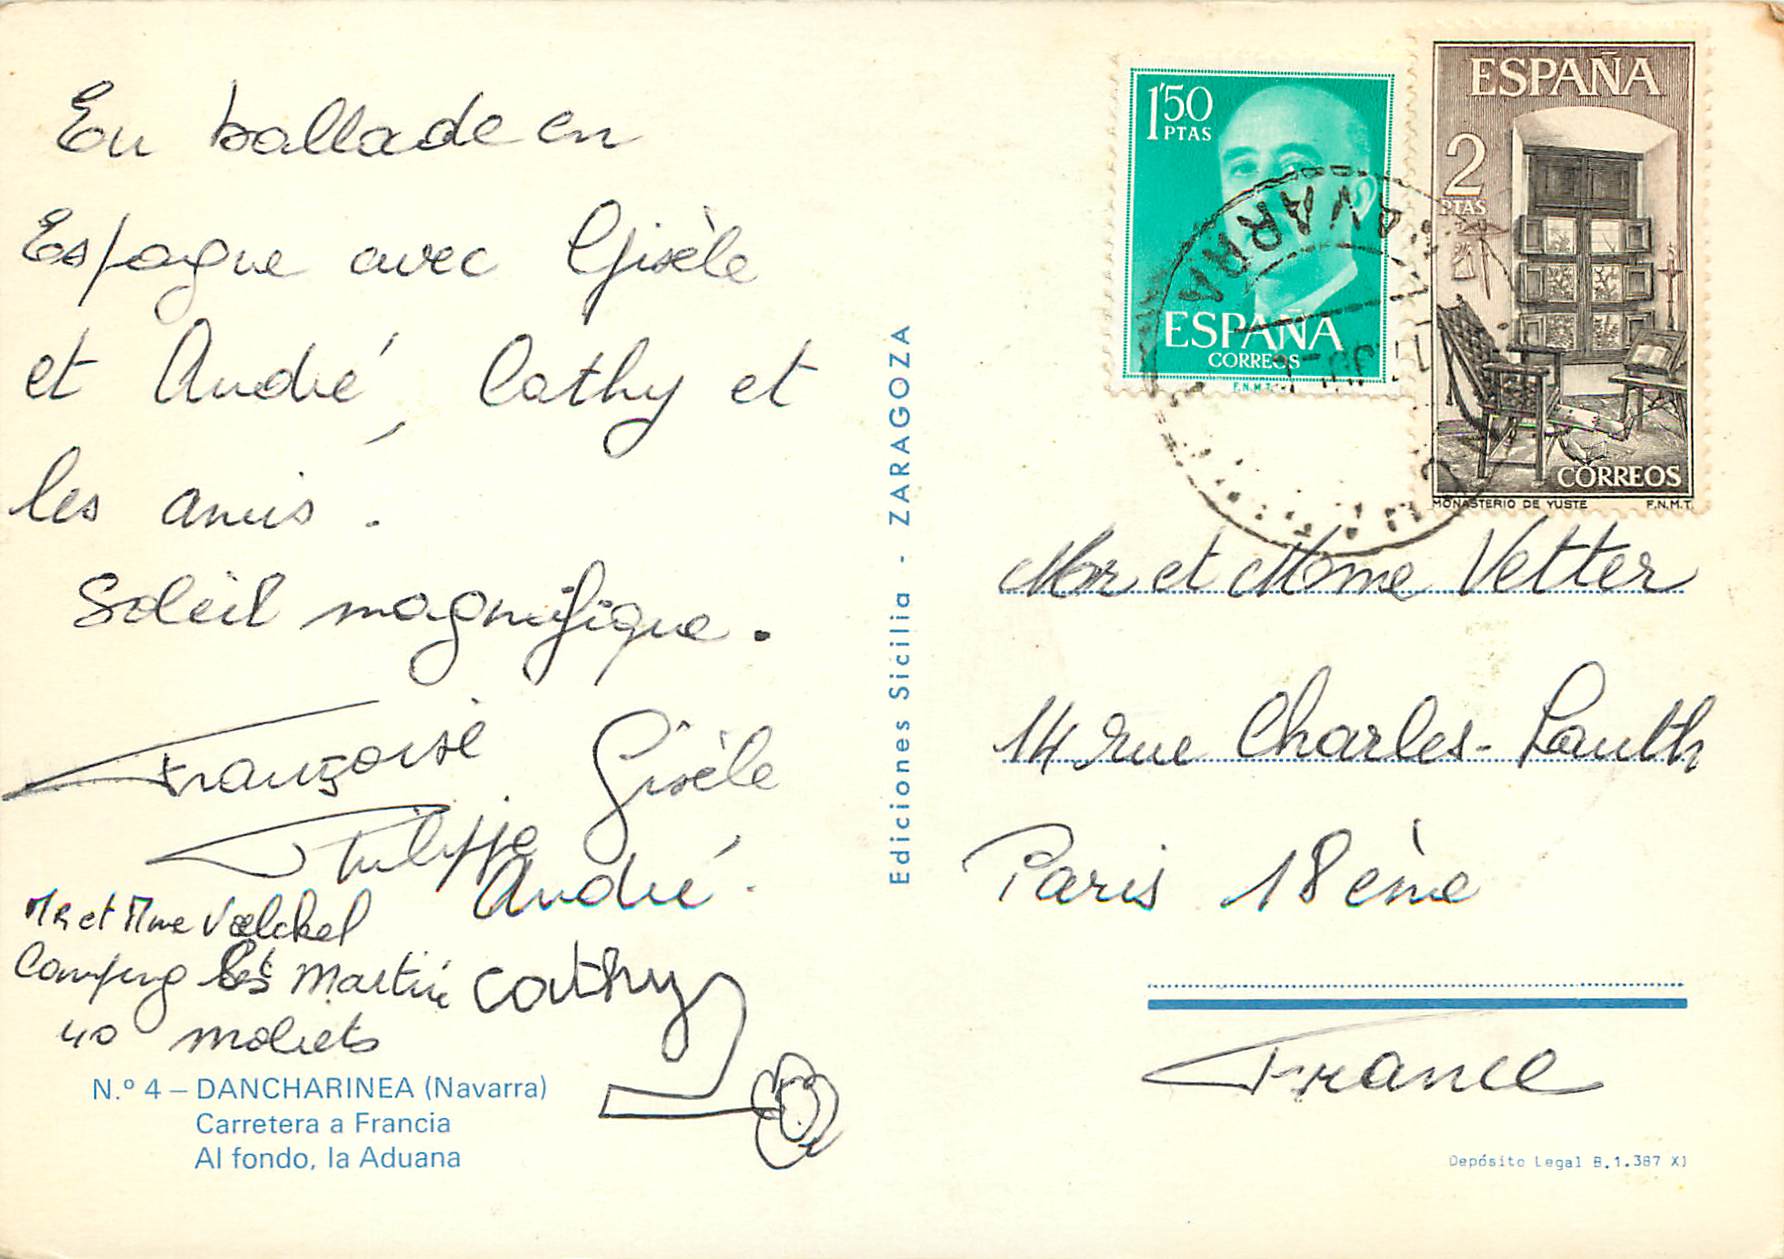 En ballade en
Espagne avec Gisèle
et André, Cathy et
les amis.
Soleil magnifique.
Françoise Gisèle
Philippe
André.
Mr et Mme Vœlckel
Camping St Martin Cathy
40 moliets
N.º 4 – DANCHARINEA (Navarra)
Carretera a Francia
Al fondo, la Aduana
Ediciones Sicilia - ZARAGOZA
1'50
PTAS
ESPAÑA
CORREOS
F.N.M.T.
ESPAÑA
2
PTAS
CORREOS
MONASTERIO DE YUSTE F.N.M.T.
NAVARRA
Mr et Mme Vetter
14 rue Charles-Lauth
Paris 18ème
France
Depósito Legal B.1.387 XI